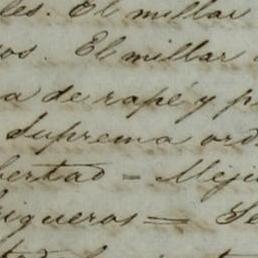 les. El millar
os. El millar
a de rapé y p
Suprema ord
bertad = Meji
igueros = Se